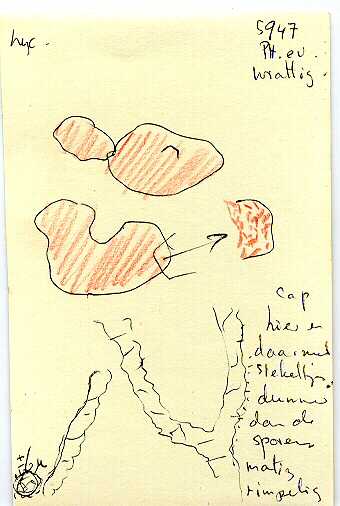 hyc.
5947
Pt. ev.
wrattig.
cap
hier en
daar met
stekeltjes
dunner
dan de
sporen
matig
rimpelig